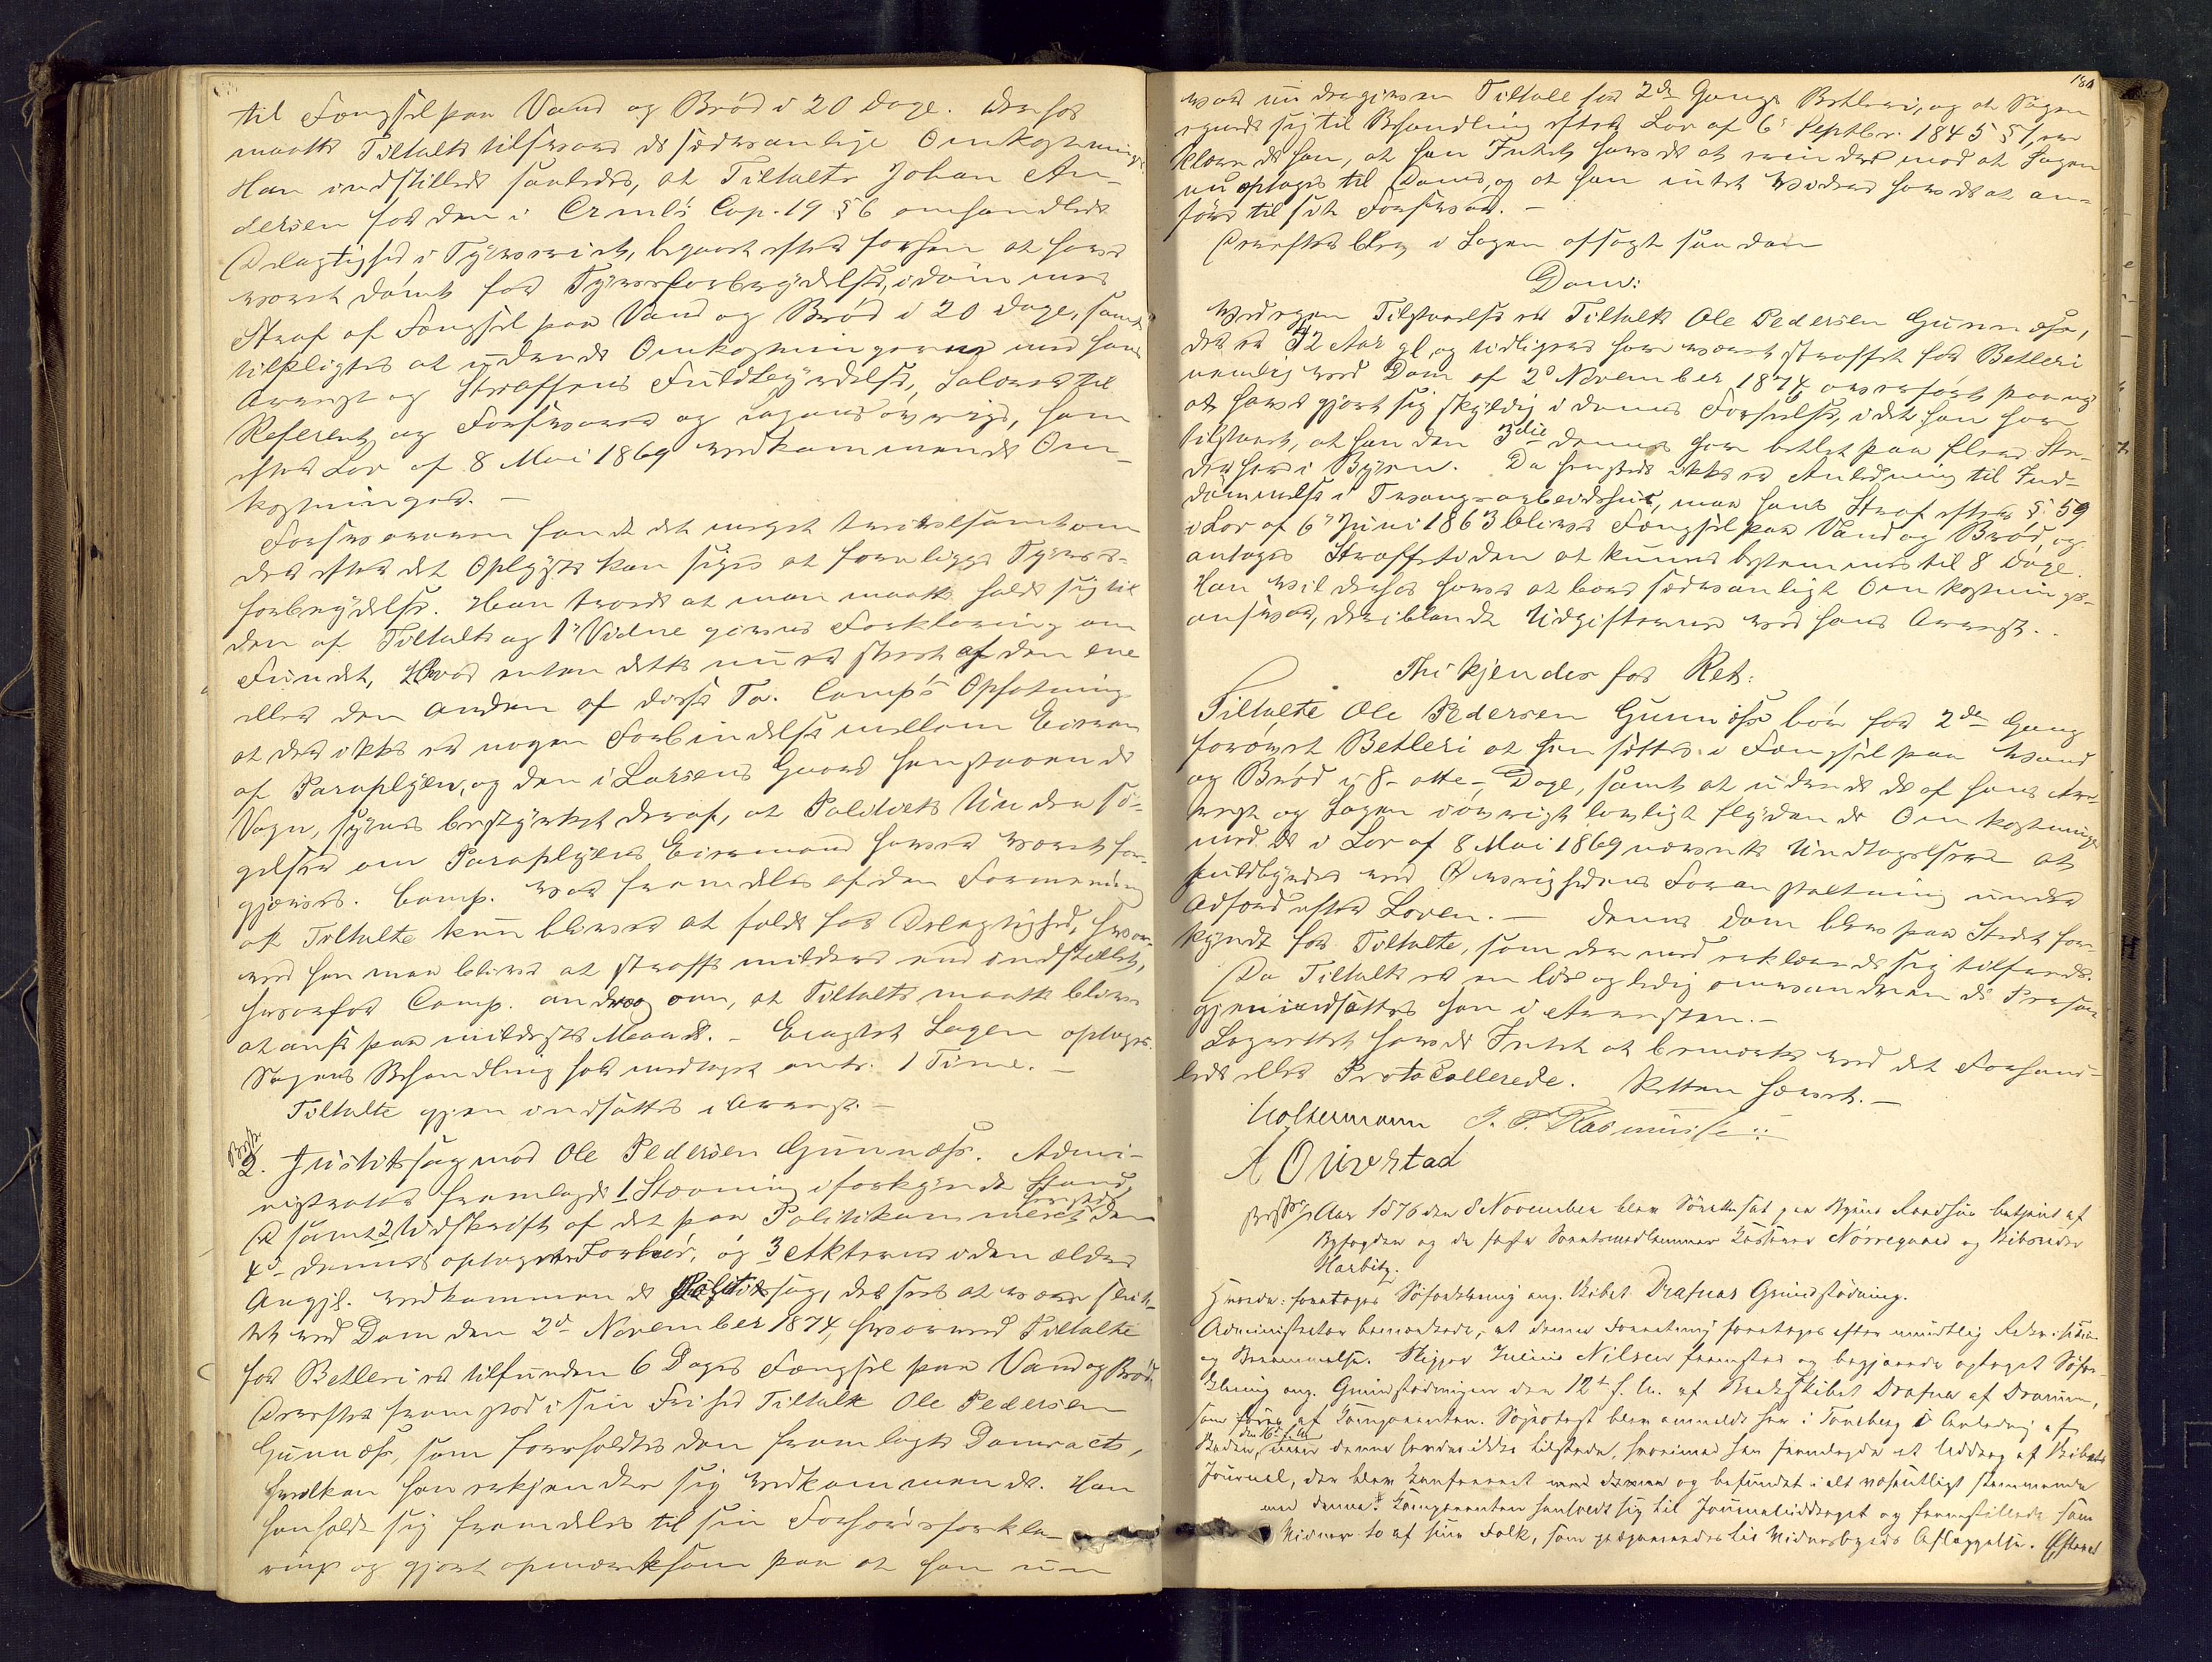 til Fængsel paa Vand og Brød i 20 Dage. Derhos
maatte Tiltalte tilsvare de sædvanlige Omkostninger.
Han indstillede saaledes, at Tiltalte Johan An-
dersen for den i Crmls Cap. 19 § 6 omhandlede
Delagtighed i Tyveri, begaaet efter forhen at have
været dømt for Tyvsforbrydelse, idømmes
Straf af Fængsel paa Vand og Brød i 20 Dage, samt
tilpligtes at udrede Omkostningerne ved hans
Arrest og Straffens Fuldbyrdelse, Salair til
Referent og Forsvarer og Sagens øvrige, ham
efter Lov af 8 Mai 1869 vedkommende Om-
kostninger. —
Forsvareren fandt det meget tvivlsomt om
der efter det Oplyste kan siges at foreligge Tyvs-
forbrydelse. Han troede at man maatte holde sig til
den af Tiltalte og 1ste Vidne givne Forklaring om
Fundet, hvad enten dette nu er skeet af den ene
eller den anden af disse To. Comp's Opfatning
at der ikke er nogen Forbindelse mellem Eieren
af Paraplyen, og den i Larsens Gaard henstaaende
Vogn, synes bestyrket deraf, at Politiets Undersø-
gelser om Paraplyens Eiermand have været for-
gjæves. Comp. var fremdeles af den Formening
at Tiltalte kun bliver at fælde for Delagtighed, hvor-
ved han maa blive at straffe mildere end indstillet,
hvorfor Comp. androg om, at Tiltalte maatte blive
at ansee paa mildeste Maade. — Eragtet Sagen optages.
Sagens Behandling har medtaget omtr. 1 Time. —
Tiltalte gjenindsattes i Arrest. —
2. Justitssag mod Ole Pedersen Gunnæss. Admi-
nistrator fremlagde 1 Stævning i forkyndt Stand,
samt 2 Udskrift af det paa Politikammeret den
4de dennes optagne Forhør, og 3 Akterne i den ældre
Angjl. vedkommende Justitssag, der sees at være slut-
tet ved Dom den 2den November 1874, hvorved Tiltalte
for Betleri er tilfunden 6 Dages Fængsel paa Vand og Brød.
Derefter fremstod i sin Frihed Tiltalte Ole Pedersen
Gunnæss, som foreholdtes den fremlagte Domsact,
hvilken han erkjendte sig vedkommende. Han
henholdt sig fremdeles til sin Forhørsforkla-
ring og gjort opmærksom paa at han nu
184
var undergiven Tiltale for 2den Gangs Betleri, og at Sagen
egnede sig til Behandling efter Lov af 6te Septbr. 1845 § 1, er-
klærede han, at han Intet havde at erindre mod at Sagen
nu optages til Doms, og at han intet videre havde at an-
føre til sit Forsvar. —
Derefter blev i Sagen afsagt saadan
Dom:
Ved egen Tilstaaelse er Tiltalte Ole Pedersen Gunnæss,
der er 42 Aar gl. og tidligere har været straffet for Betleri
nemlig ved Dom af 2den November 1874 overført paany
at have gjort sig skyldig i denne Forseelse, idet han har
tilstaaet, at han den 3die dennes har betlet paa flere Ste-
der her i Byen. Da her ikke er Anledning til Ind-
dømmelse i Tvangsarbeidshus, maa hans Straf efter § 59
i Lov af 6te Juni 1863 blive Fængsel paa Vand og Brød, og
antages Straffetiden at kunne bestemmes til 8 Dage.
Han vil derhos have at bære sædvanligt Omkostnings-
ansvar, deriblandt Udgifterne ved hans Arrest.
Thi kjendes for Ret:
Tiltalte Ole Pedersen Gunnæss bør for 2den Gang
forøvet Betleri at hensættes i Fængsel paa Vand
og Brød i 8 - otte - Dage, samt at udrede de af hans Ar-
rest og Sagen iøvrigt lovligt flydende Omkostninger
med de i Lov af 8 Mai 1869 nævnte Undtagelser. At
fuldbyrdes ved Øvrighedens Foranstaltning under
Adfærd efter Loven. — Denne Dom blev paa Stedet for-
kyndt for Tiltalte, som dermed erklærede sig tilfreds.
Da Tiltalte er en løs og ledig omvandrende Person
gjenindsattes han i Arresten. —
Lagrettet havde Intet at bemærke ved det Forhand-
lede eller Protocollerede. Retten hævet. —
Woltermann J. P. Rasmussen
A Quverstad
Aar 1876 den 8 November blev Søret sat paa Byens Raadhus betjent af
Byfogden og de faste Søretsmedlemmer Nørregaard og Skibsreder
Harbitz.
Hvorda: foretages Søforklaring ang. Skibet Drafnas Grundstødning.
Administrator bemærkede, at denne Forretning foretages efter mundtlig
og Berammelse. Skipper Julius Nilsen fremstod og begjærede optaget Søfor-
klaring ang. Grundstødningen den 12te f. M. af Barkskibet Drafna af Drammen,
som føres af Comparenten. Søprotest blev anmeldt her i Tønsberg i Anledning af
den 16de f. M.
Skaden, men denne havdes ikke tilstede, hvorimod han fremlagde et Uddrag af Skibets
Journal, der blev confereret med denne og befundet i alt væsentligt stemmende
med denne. Comparenten henholdt sig til Journaluddraget og fremstillede som
Vidner to af sine Folk, som til Vidnesbyrds Aflæggelse. Efterat